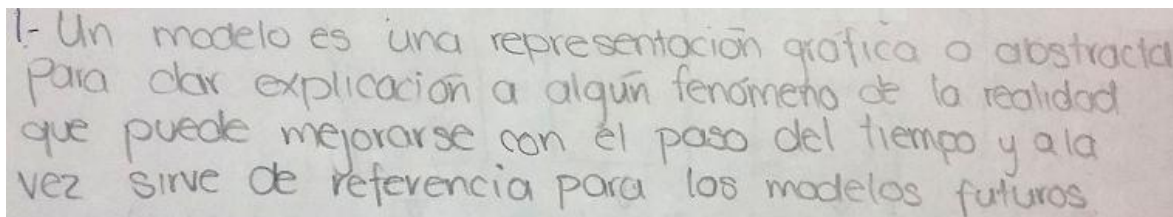 1- Un modelo es una representación gráfica o abstracta
para dar explicación a algún fenómeno de la realidad
que puede mejorarse con el paso del tiempo y a la
vez sirve de referencia para los modelos futuros.